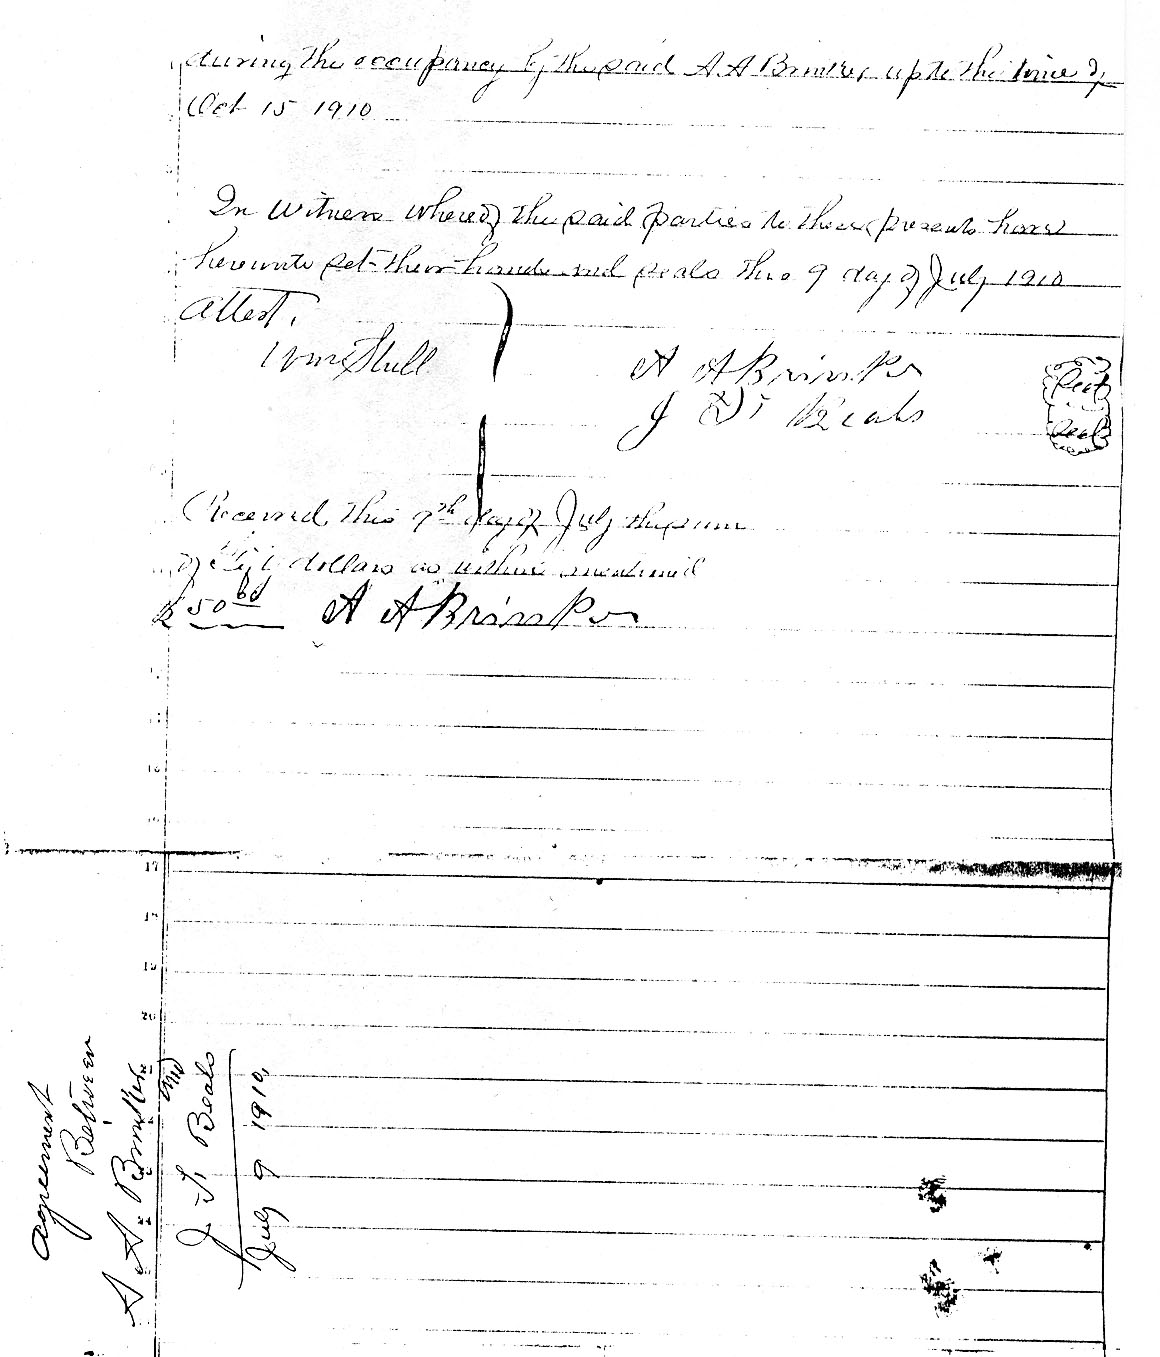 during the occupancy by the said A A Brinker up to the time of
Oct 15 1910
In Witness whereof the said parties to these presents have
hereunto set their hands and seals this 9 day of July 1910
Attest.
Wm Stull
A A Brinker
J Beals
Seal
Seal
Received this 9th day of July the sum
of fifty dollars as within mentioned
$50 00 A A Brinker
17
18
19
20
agreement
Between
A. A. Brinker
and
J Beals
July 9 1910,